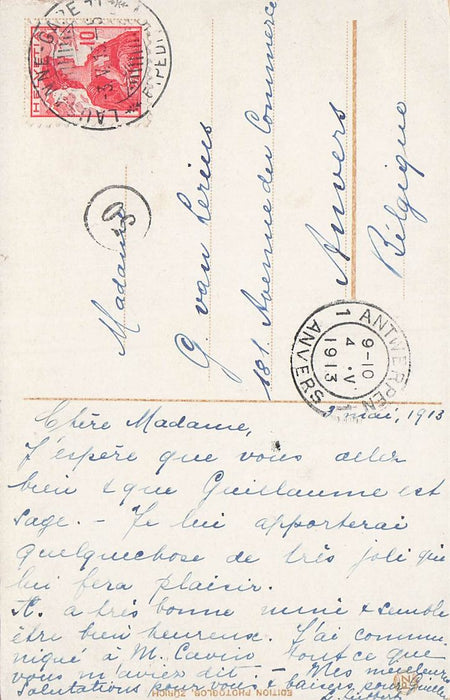 LAUSANNE-GARE
EXPED
3.V.13
HELVETIA
10
Madame
G van Lerius
181 Avenue du Commerce
Anvers
Belgique
ANTWERPEN
1
9-10
4 · V
1913
1
ANVERS
3 mai, 1913
Chère Madame,
J'espère que vous aller
bien & que Guillaume est
sage. - Je lui apporterai
quelquechose de très joli qui
lui fera plaisir.
A. a très bonne mine & semble
être bien heureuse. J'ai commu-
niqué à M. tout ce que
vous m'aviez dit - Mes meilleures
salutations pour vous & baisers pour
EDITION PHOTOGLOB ZÜRICH